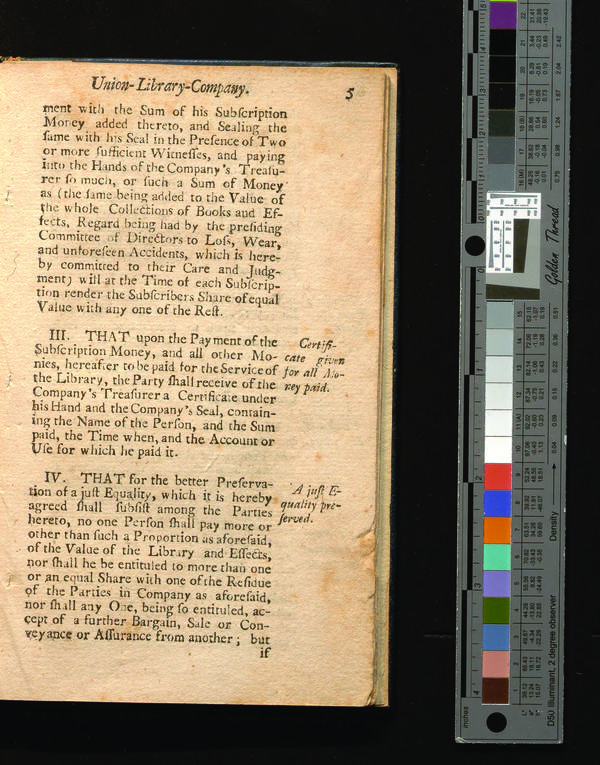 Union-Library-Company. 5
ment with the Sum of his Subſcription
Money added thereto, and Sealing the
ſame with his Seal in the Preſence of Two
or more ſufficient Witneſſes, and paying
into the Hands of the Company's Treaſu-
rer ſo much, or ſuch a Sum of Money
as (the ſame being added to the Value of
the whole Collections of Books and Ef-
fects, Regard being had by the preſiding
Committee of Directors to Loſs, Wear,
and unforeſeen Accidents, which is here-
by committed to their Care and Judg-
ment) will at the Time of each Subſcrip-
tion render the Subſcribers Share of equal
Value with any one of the Reſt.
III. THAT upon the Payment of the
Subſcription Money, and all other Mo-
nies, hereafter to be paid for the Service of
the Library, the Party ſhall receive of the
Company's Treaſurer a Certificate under
his Hand and the Company's Seal, contain-
ing the Name of the Perſon, and the Sum
paid, the Time when, and the Account or
Uſe for which he paid it.
Certifi-
cate given
for all Mo-
ney paid.
IV. THAT for the better Preſerva-
tion of a juſt Equality, which it is hereby
agreed ſhall ſubſiſt among the Parties
hereto, no one Perſon ſhall pay more or
other than ſuch a Proportion as aforeſaid,
of the Value of the Library and Effects,
nor ſhall he be entituled to more than one
or an equal Share with one of the Reſidue
of the Parties in Company as aforeſaid,
nor ſhall any One, being ſo entituled, ac-
cept of a further Bargain, Sale or Con-
veyance or Aſſurance from another; but
if
A juſt E-
quality pre-
ſerved.
Golden Thread
Density
D50 Illuminant, 2 degree observer
inches